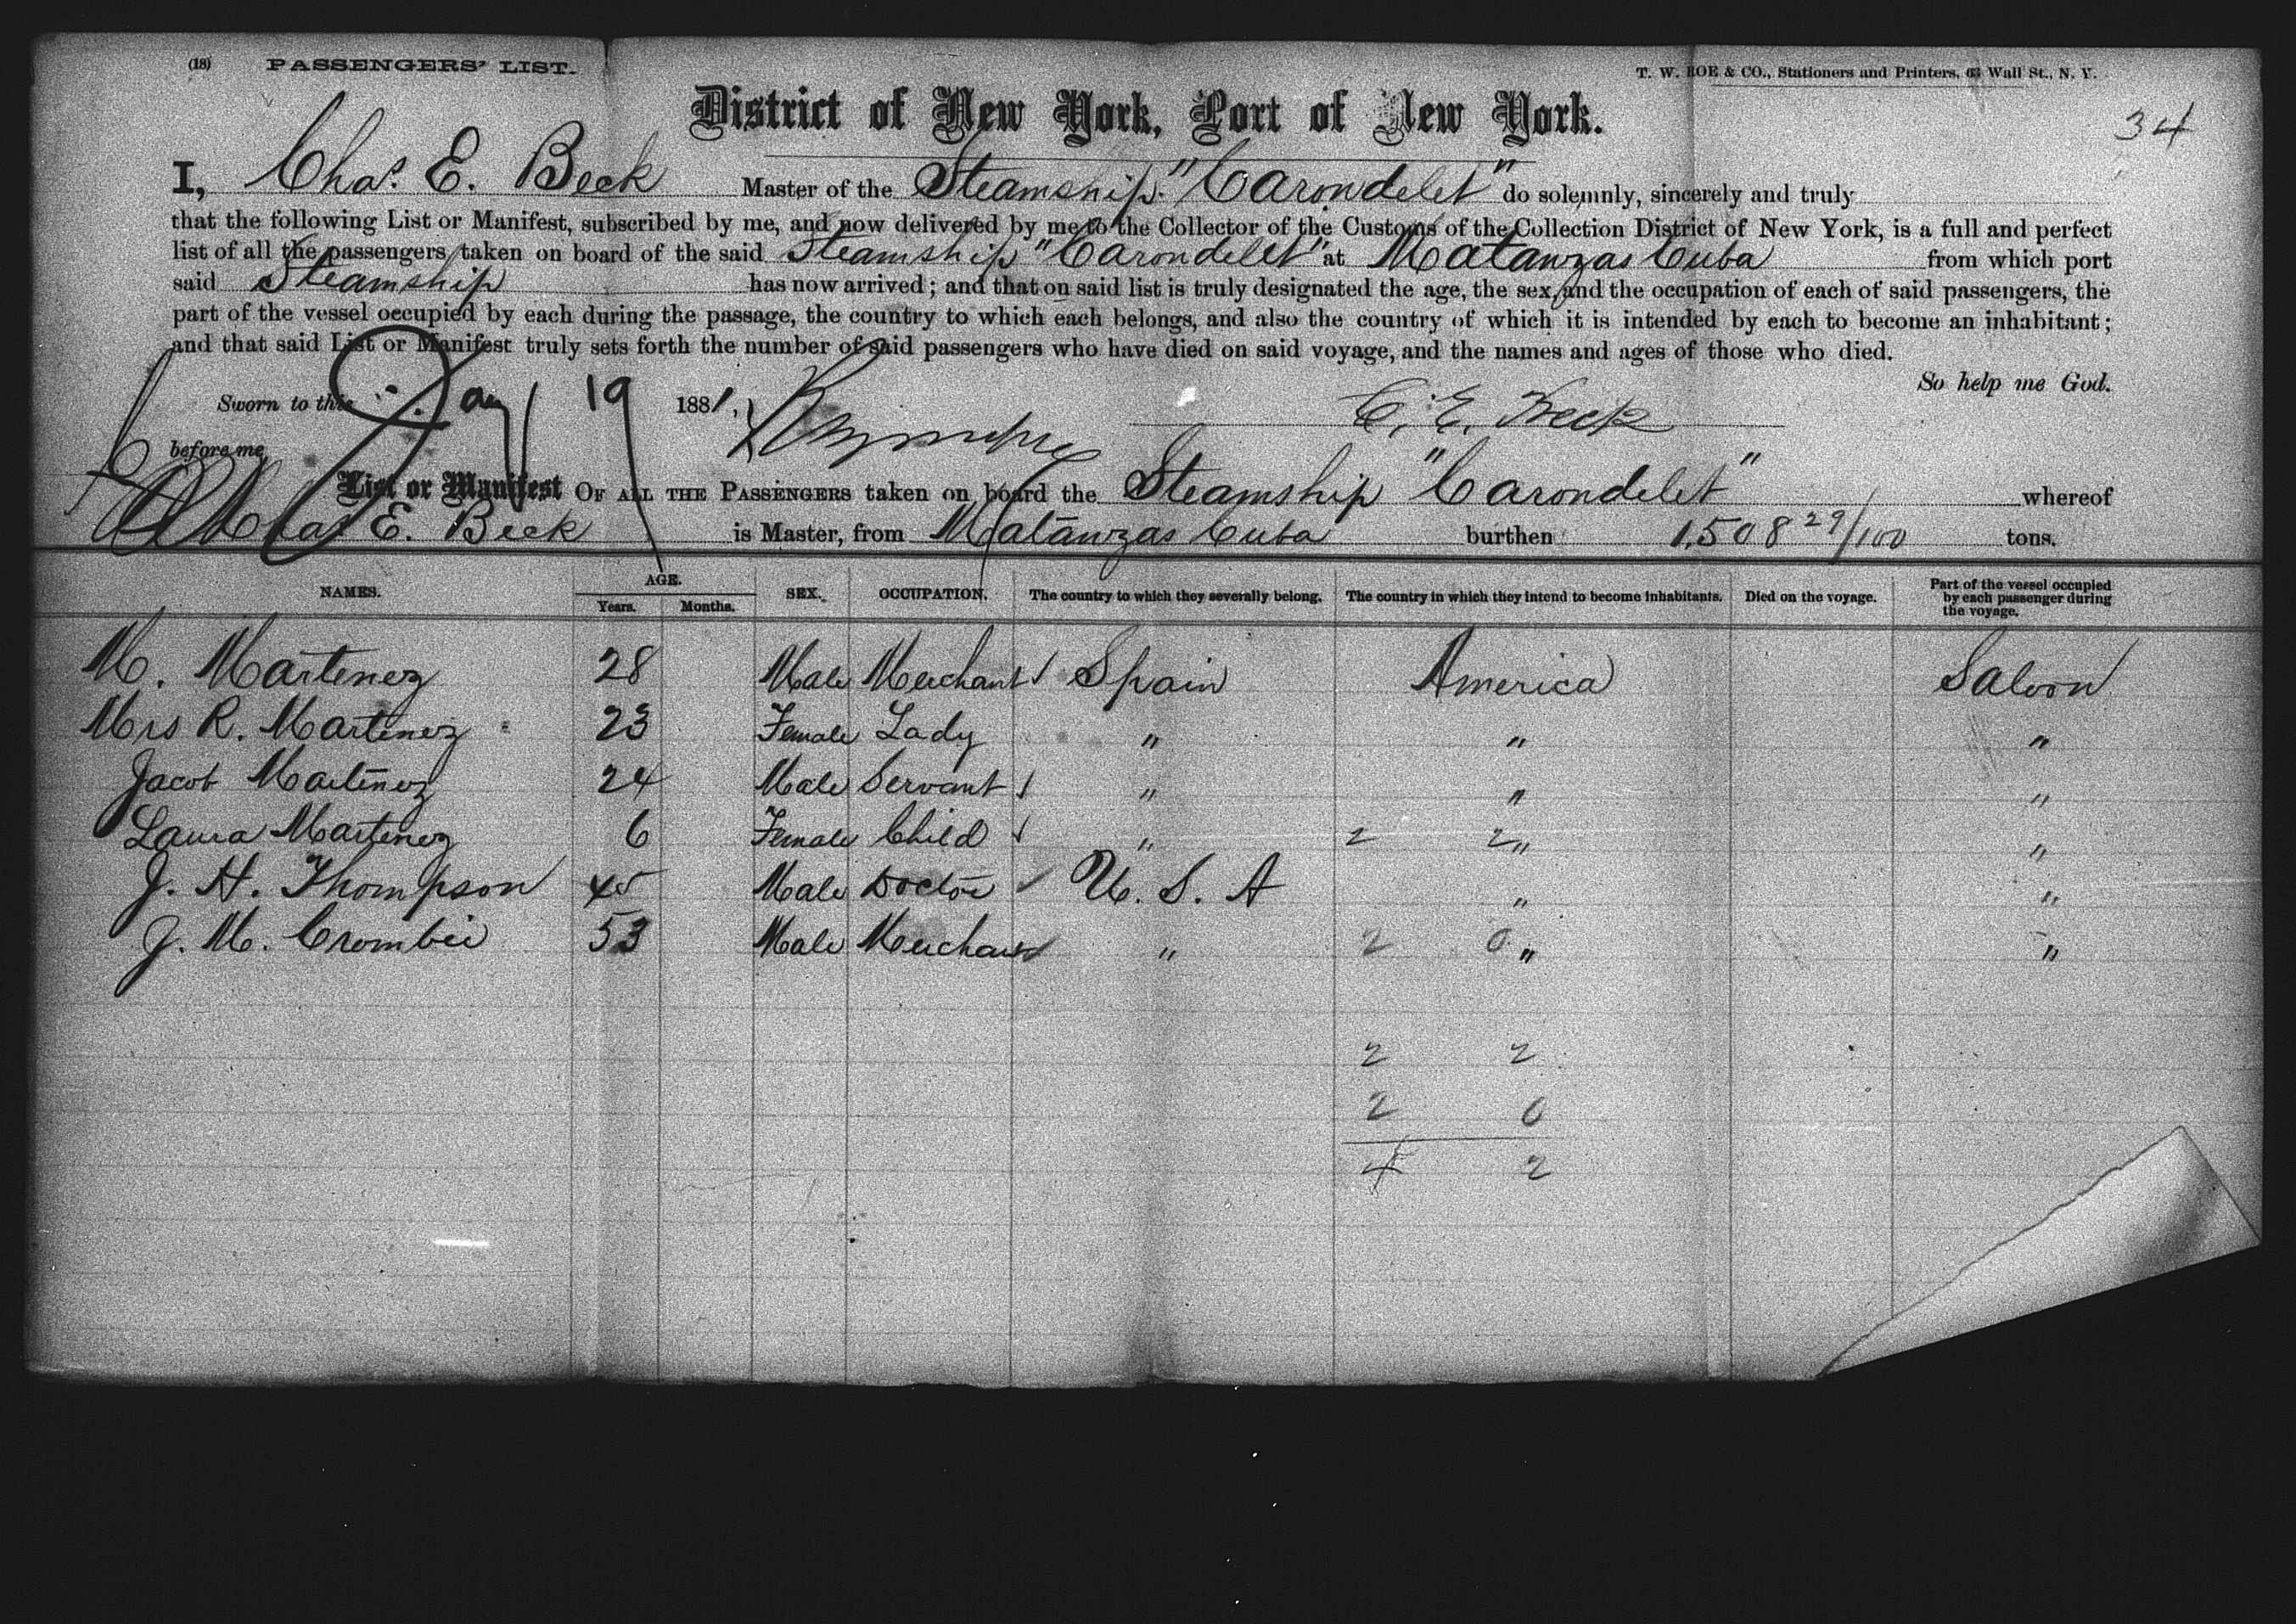 (18) PASSENGERS' LIST.
T. W. ROE & CO., Stationers and Printers, 63 Wall St., N. Y.
District of New York, Port of New York.
34
I, Chas. E. Beck Master of the Steamship "Carondelet" do solemnly, sincerely and truly
that the following List or Manifest, subscribed by me, and now delivered by me to the Collector of the Customs of the Collection District of New York, is a full and perfect
list of all the passengers taken on board of the said Steamship "Carondelet" at Matanzas Cuba from which port
said Steamship has now arrived; and that on said list is truly designated the age, the sex, and the occupation of each of said passengers, the
part of the vessel occupied by each during the passage, the country to which each belongs, and also the country of which it is intended by each to become an inhabitant;
and that said List or Manifest truly sets forth the number of said passengers who have died on said voyage, and the names and ages of those who died.
So help me God.
Sworn to this Jany 19 1881, C. E. Beck
before me
List or Manifest OF ALL THE PASSENGERS taken on board the Steamship "Carondelet" whereof
Chas E. Beck is Master, from Matanzas Cuba burthen 1,508 29/100 tons.
NAMES. AGE. Years. Months. SEX. OCCUPATION. The country to which they severally belong. The country in which they intend to become inhabitants. Died on the voyage. Part of the vessel occupied by each passenger during the voyage.
M. Martenez 28 Male Merchant Spain America Saloon
Mrs R. Martenez 23 Female Lady " " "
Jacob Martenez 24 Male Servant " " "
Laura Martenez 6 Female Child " 2 2 " "
J. H. Thompson 45 Male Doctor U. S. A " "
J. M. Crombie 53 Male Merchant " 2 0 " "
2 2
2 0
4 2